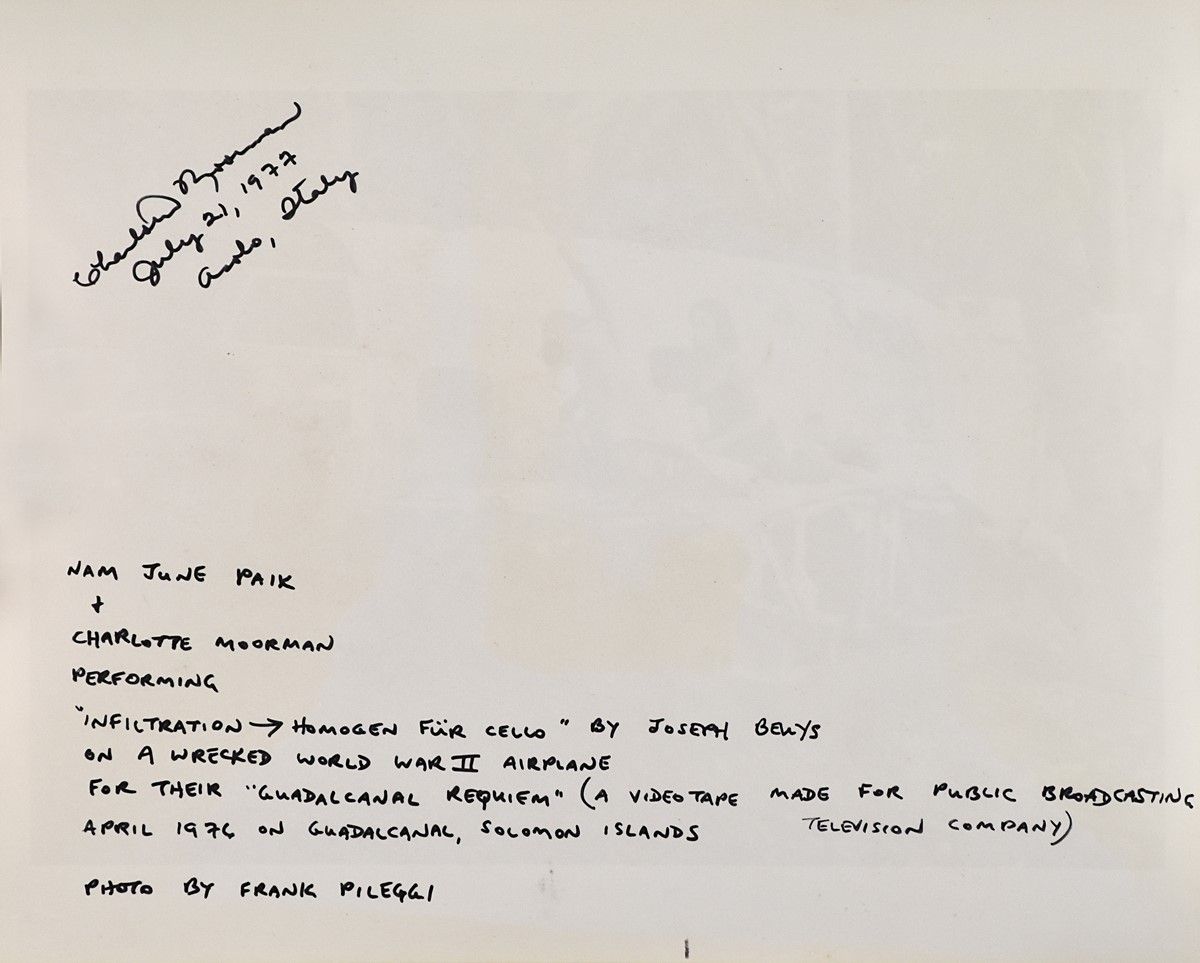 Charlotte Moorman
July 21, 1977
Asolo, Italy
NAM JUNE PAIK
+
CHARLOTTE MOORMAN
PERFORMING
"INFILTRATION → HOMOGEN FÜR CELLO" BY JOSEPH BEUYS
ON A WRECKED WORLD WAR II AIRPLANE
FOR THEIR "GUADALCANAL REQUIEM" (A VIDEOTAPE MADE FOR PUBLIC BROADCASTING
APRIL 1976 ON GUADALCANAL, SOLOMON ISLANDS TELEVISION COMPANY)
PHOTO BY FRANK PILEGGI